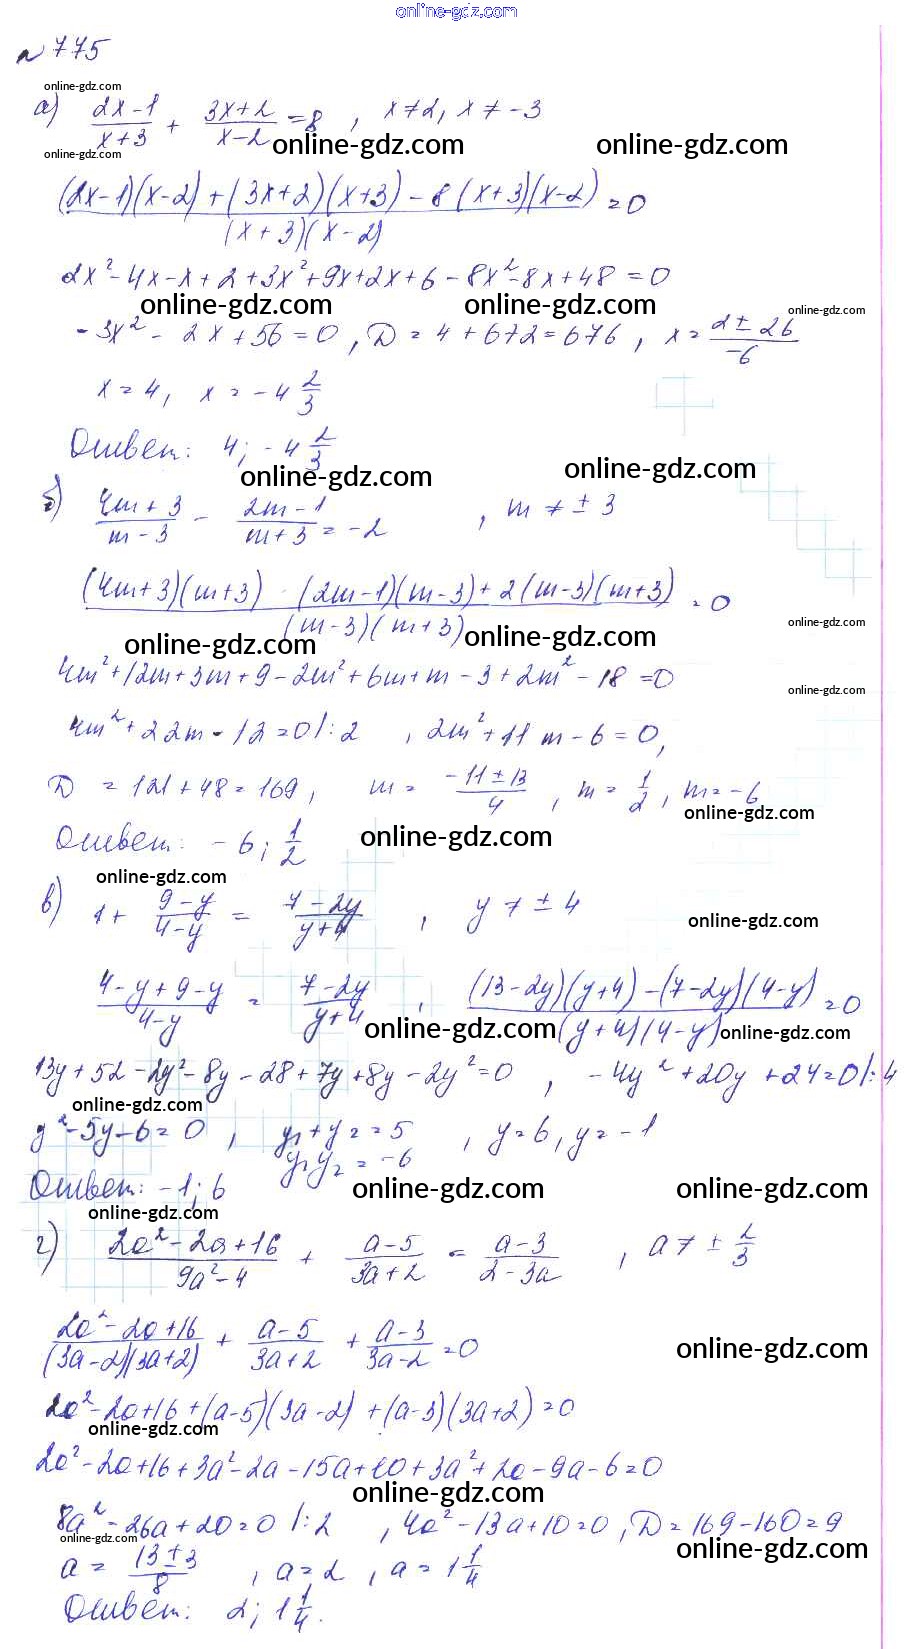 online-gdz.com
№775
online-gdz.com
а) (2x-1)/(x+3) + (3x+2)/(x-2) = 8, x≠2, x≠-3
online-gdz.com online-gdz.com
online-gdz.com
((2x-1)(x-2)+(3x+2)(x+3)-8(x+3)(x-2))/((x+3)(x-2)) = 0
2x²-4x-x+2+3x²+9x+2x+6-8x²-8x+48=0
online-gdz.com online-gdz.com online-gdz.com
-3x²-2x+56=0, D=4+672=676, x=(2±26)/-6
x=4, x=-4 2/3
Ответ: 4; -4 2/3
online-gdz.com online-gdz.com
б) (4m+3)/(m-3) - (2m-1)/(m+3) = -2, m≠±3
((4m+3)(m+3)-(2m-1)(m-3)+2(m-3)(m+3))/((m-3)(m+3)) = 0
online-gdz.com online-gdz.com online-gdz.com
4m²+12m+3m+9-2m²+6m+m-3+2m²-18=0
online-gdz.com
4m²+22m-12=0 |:2, 2m²+11m-6=0,
D=121+48=169, m=(-11±13)/4, m=1/2, m=-6
online-gdz.com
Ответ: -6; 1/2
online-gdz.com
online-gdz.com
в) 1+(9-y)/(4-y) = (7-2y)/(y+4), y≠±4
online-gdz.com
(4-y+9-y)/(4-y) = (7-2y)/(y+4), ((13-2y)(y+4)-(7-2y)(4-y))/((y+4)(4-y)) = 0
online-gdz.com online-gdz.com
13y+52-2y²-8y-28+7y+8y-2y²=0, -4y²+20y+24=0 |:4
online-gdz.com
y²-5y-6=0, y₁+y₂=5, y=6, y=-1
y₁y₂=-6
Ответ: -1; 6
online-gdz.com online-gdz.com
online-gdz.com
г) (2a²-2a+16)/(9a²-4) + (a-5)/(3a+2) = (a-3)/(2-3a), a≠±2/3
(2a²-2a+16)/((3a-2)(3a+2)) + (a-5)/(3a+2) + (a-3)/(3a-2) = 0
online-gdz.com
2a²-2a+16+(a-5)(3a-2)+(a-3)(3a+2)=0
online-gdz.com
2a²-2a+16+3a²-2a-15a+10+3a²+2a-9a-6=0
online-gdz.com
8a²-26a+20=0 |:2, 4a²-13a+10=0, D=169-160=9
online-gdz.com online-gdz.com
a=(13±3)/8, a=2, a=1 1/4
Ответ: 2; 1 1/4.